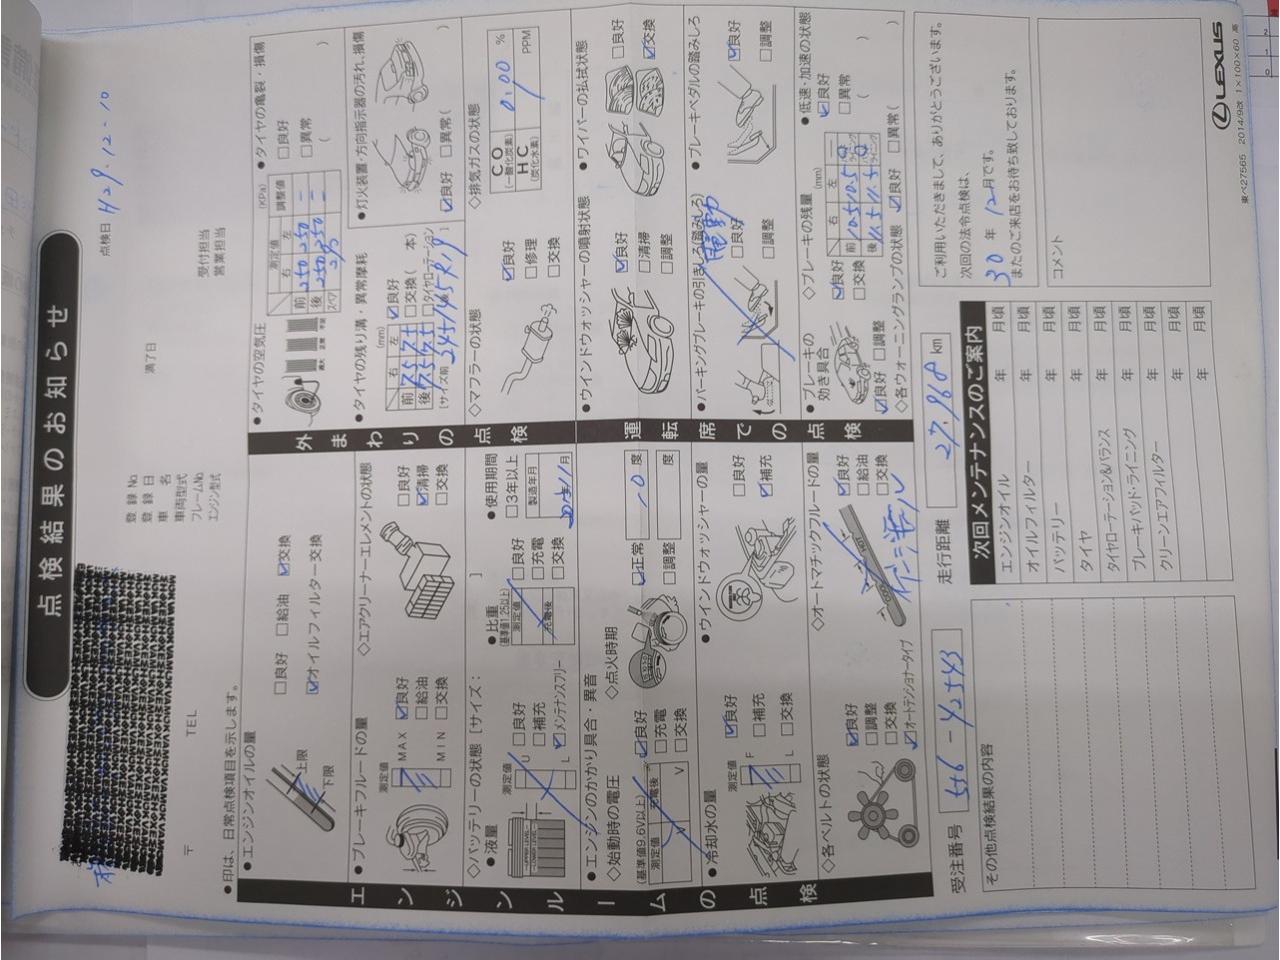 点検結果のお知らせ
点検日 H29.12-10
〒
TEL
登録No.
登録日
車名
車両型式
フレームNo.
エンジン型式
満了日
受付担当
営業担当
●印は、日常点検項目を示します。
エンジンルームの点検
●エンジンオイルの量
上限
下限
□良好 □給油 ☑交換
☑オイルフィルター交換
●ブレーキフルードの量
測定値
MAX
MIN
☑良好
□給油
□交換
◇エアクリーナーエレメントの状態
□良好
☑清掃
□交換
◇バッテリーの状態 [サイズ: ]
●液量
UPPER LEVEL
LOWER LEVEL
測定値
U
L
□良好
□補充
☑メンテナンスフリー
●比重
(基準値1.25以上)
測定値
充電後
□良好
□充電
□交換
●使用期間
□3年以上
製造年月
年 月
●エンジンのかかり具合・異音
◇始動時の電圧
(基準値9.6V以上)
測定値
充電後
V
V
☑良好
□充電
□交換
◇点火時期
☑正常
□調整
度
度
●冷却水の量
測定値
F
L
☑良好
□補充
□交換
●ウインドウォッシャーの量
□良好
☑補充
◇各ベルトの状態
☑良好
□調整
□交換
☑オートテンショナータイプ
◇オートマチックフルードの量
HOT
COOL
☑良好
□給油
□交換
外まわりの点検
●タイヤの空気圧
(KPa)
測定値
調整値
右 左
前 250 250 —
後 250 250 —
スペア
●タイヤの亀裂・損傷
□良好
□異常
( )
●タイヤの残り溝・異常摩耗
(mm)
右 左
前 7.5
後 7.5
☑良好
□交換( 本)
□タイヤローテーション
[サイズ前 245/45R19
●灯火装置・方向指示器の汚れ、損傷
☑良好 □異常( )
◇マフラーの状態
☑良好
□修理
□交換
◇排気ガスの状態
CO
(一酸化炭素)
0.00 %
HC
(炭化水素)
PPM
運転席での点検
●ウインドウォッシャーの噴射状態
☑良好
□清掃
□調整
●ワイパーの払拭状態
□良好
☑交換
●パーキングブレーキの引きしろ(踏みしろ)
電動
□良好
□調整
●ブレーキペダルの踏みしろ
☑良好
□調整
●ブレーキの効き具合
☑良好 □調整
◇ブレーキの残量
(mm)
右 左
前 10.5 10.5
後 11.5 11.5
ライニング
ライニング
☑良好
□交換
●低速・加速の状態
☑良好
□異常
( )
◇各ウォーニングランプの状態 ☑良好 □異常( )
受注番号 556-42543
走行距離 27,968 km
その他点検結果の内容
次回メンテナンスのご案内
エンジンオイル 年 月頃
オイルフィルター 年 月頃
バッテリー 年 月頃
タイヤ 年 月頃
タイヤローテーション&バランス 年 月頃
ブレーキパッド・ライニング 年 月頃
クリーンエアフィルター 年 月頃
年 月頃
ご利用いただきまして、ありがとうございます。
次回の法令点検は、
30 年 12 月です。
またのご来店をお待ち致しております。
コメント
LEXUS
東ベ27565 2014/9改 1×100×60 高